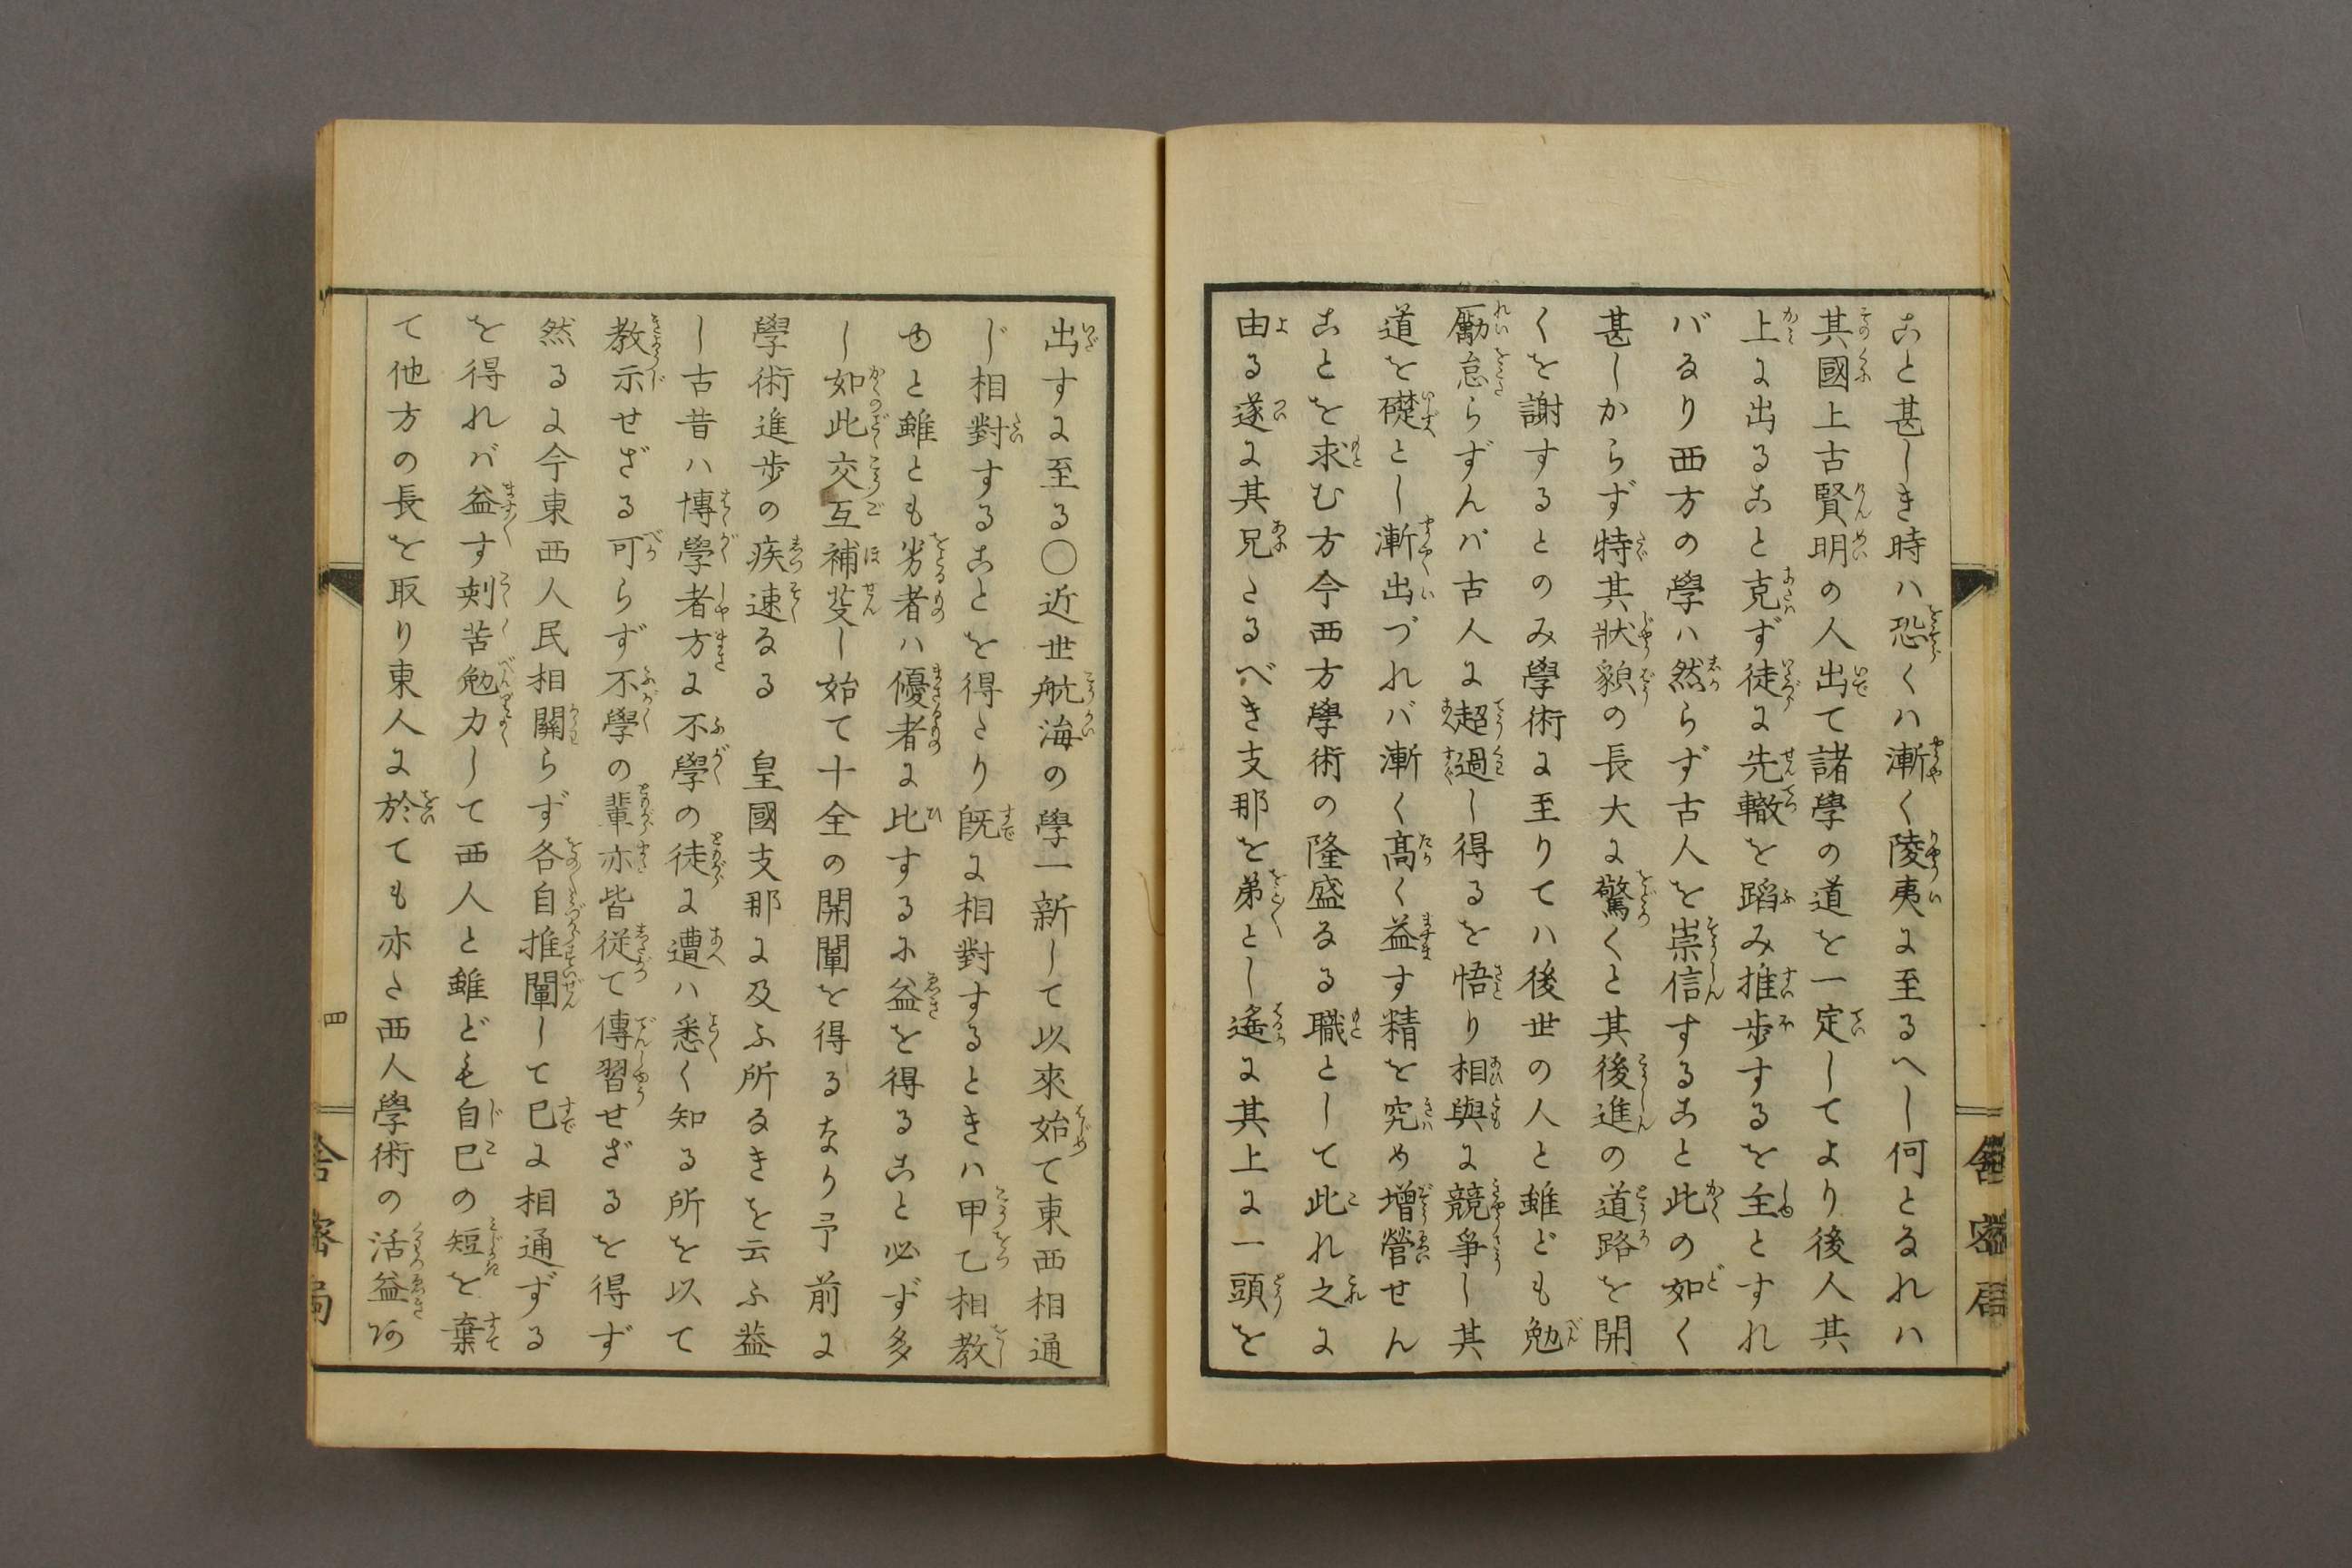 こと甚しき時ハ恐くハ漸く陵夷に至るへし何となれハ
其國上古賢明の人出て諸學の道を一定してより後人其
上に出ること克ず徒に先轍を蹈み推歩するを主とすれ
バなり西方の學ハ然らず古人を崇信すること此の如く
甚しからず特其狀貌の長大に驚くと其後進の道路を開
くを謝するとのみ學術に至りてハ後世の人と雖ども勉
勵怠らずんバ古人に超過し得るを悟り相與に競爭し其
道を礎とし漸出づれバ漸く髙く益す精を究め增營せん
ことを求む方今西方學術の隆盛なる職として此れ之に
由る遂に其兄たるべき支那を弟とし遙に其上に一頭を
出すに至る○近世航海の學一新して以來始て東西相通
じ相對することを得たり既に相對するときハ甲乙相教
ゆと雖とも劣者ハ優者に比するに益を得ること必ず多
し如此交互補茇し始て十全の開闡を得るなり予前に
學術進歩の疾速なる　皇國支那に及ふ所なきを云ふ葢
し古昔ハ博學者方に不學の徒に遭ハ悉く知る所を以て
教示せざる可らず不學の輩亦皆従て傳習せざるを得ず
然るに今東西人民相關らず各自推闡して已に相通ずる
を得れバ益す刻苦勉力して西人と雖ども自己の短を棄
て他方の長を取り東人に於ても亦た西人學術の活益阿
四
舎密局
舎密局